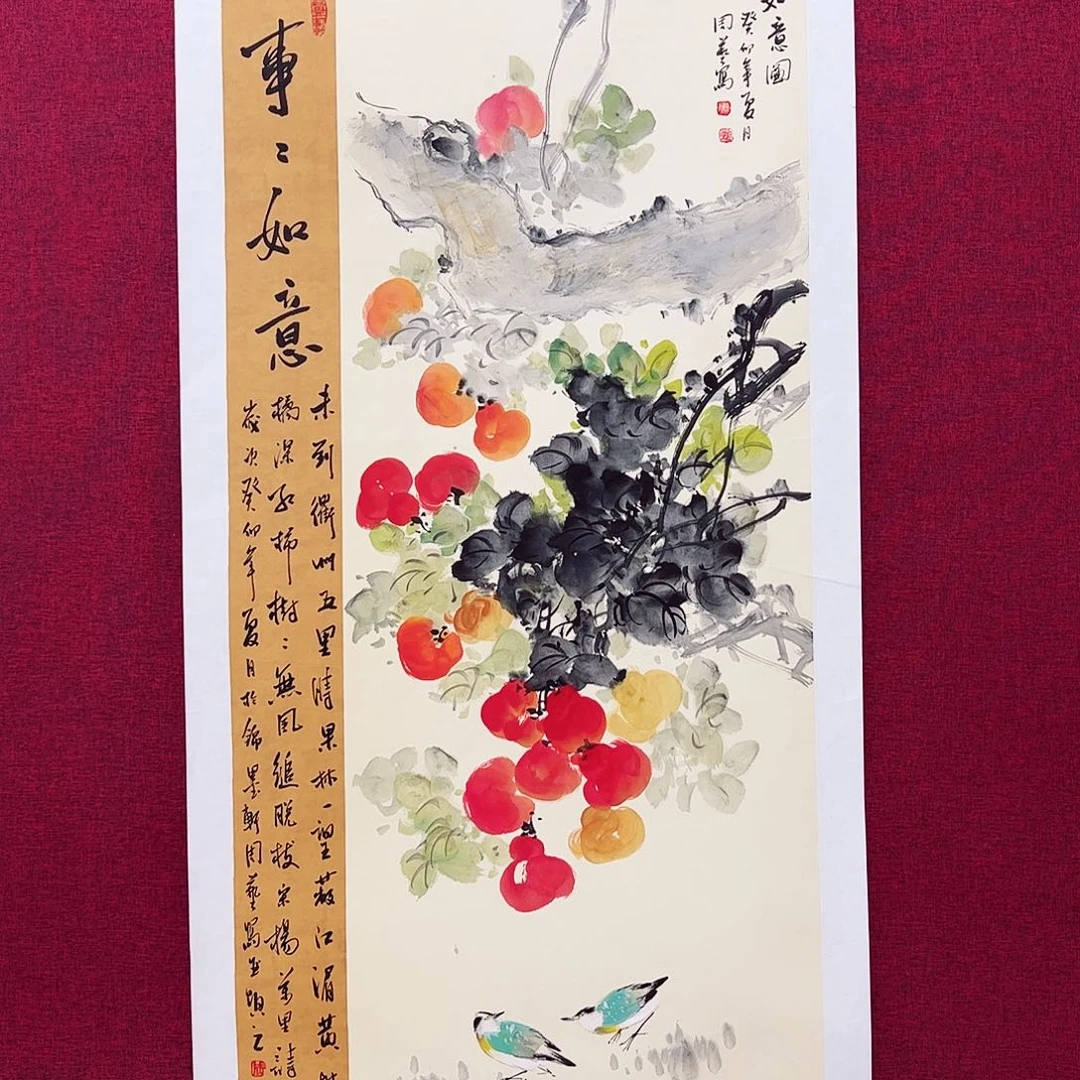 如意圖
癸卯年夏月
周藝寫
事〻如意
未到衢州五里時果林一望蔽江湄黄
橘深紅柿樹〻無風縋脱枝宋楊萬里詩
歲次癸卯年夏月於錦墨軒周藝寫並題之